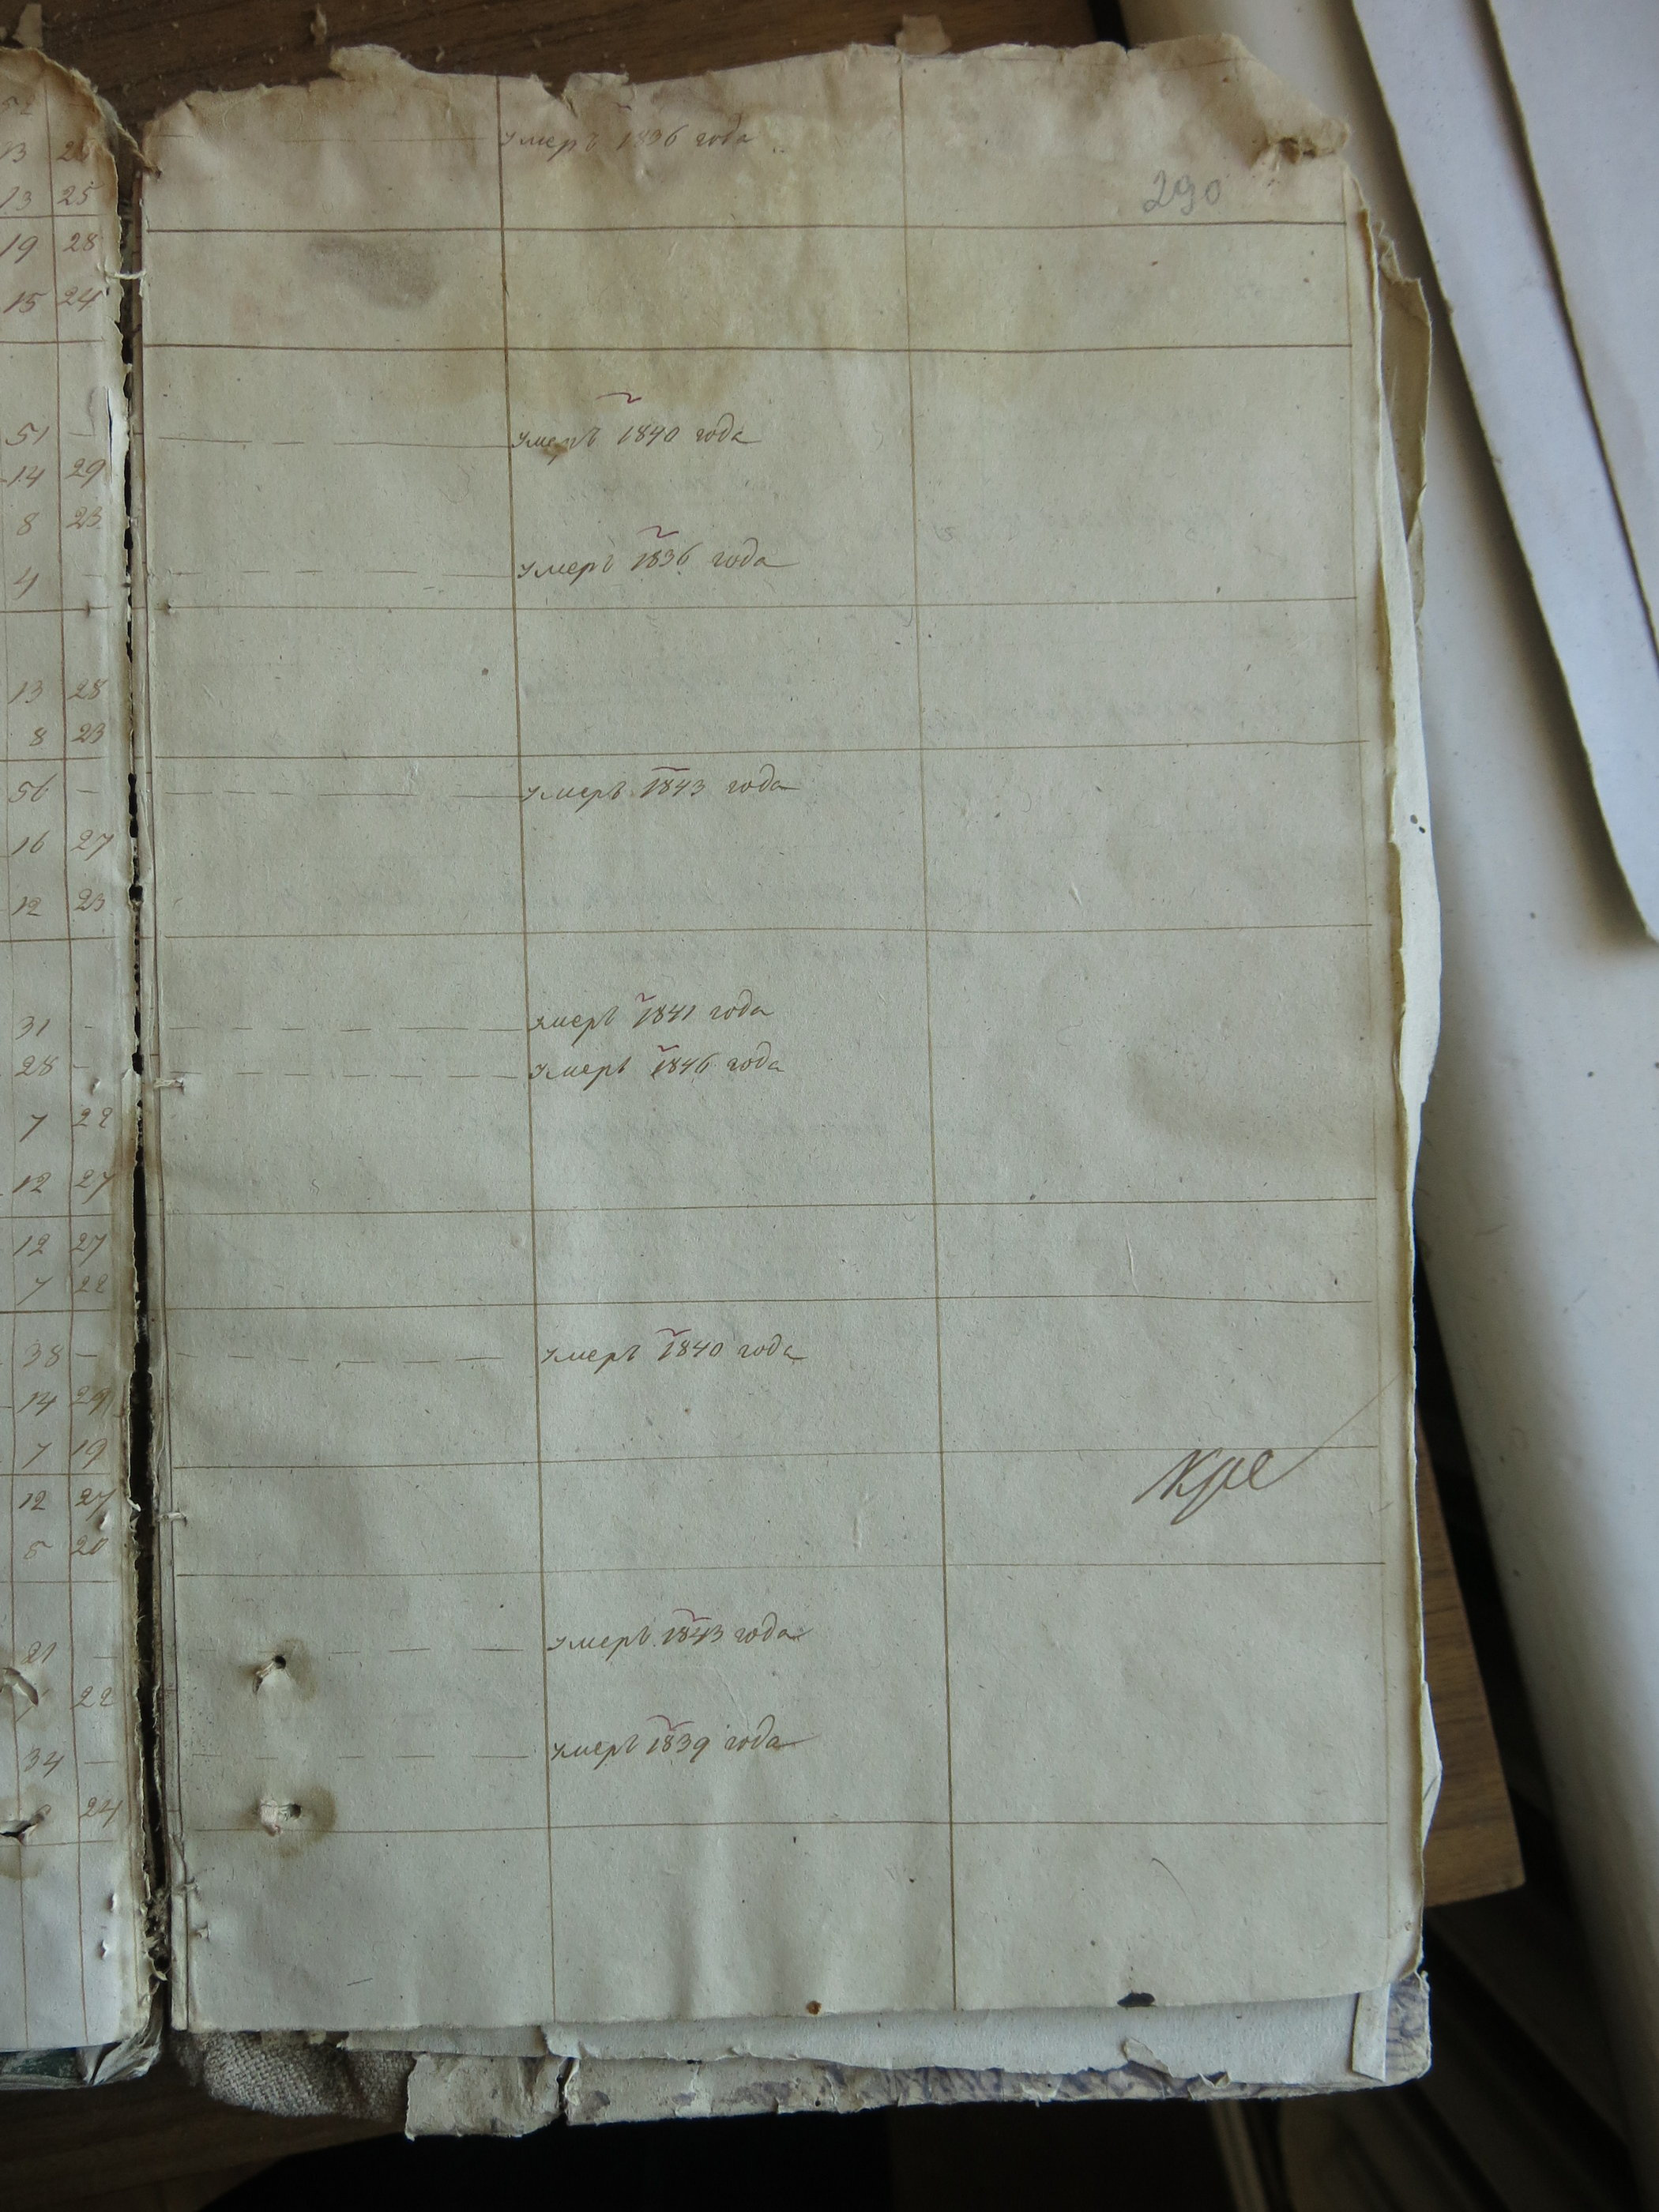 13 25
умеръ 1836 года
290
13 25
19 28
15 24
51 — умеръ 1840 года
14 29
8 23
4 — умеръ 1836 года
13 28
8 23
56 — умеръ 1843 года
16 27
12 23
31 — умеръ 1841 года
28 — умеръ 1846 года
7 22
12 27
12 27
7 22
38 — умеръ 1840 года
14 29
7 19
12 27
5 20
21 — умеръ 1843 года
22
34 — умеръ 1839 года
24